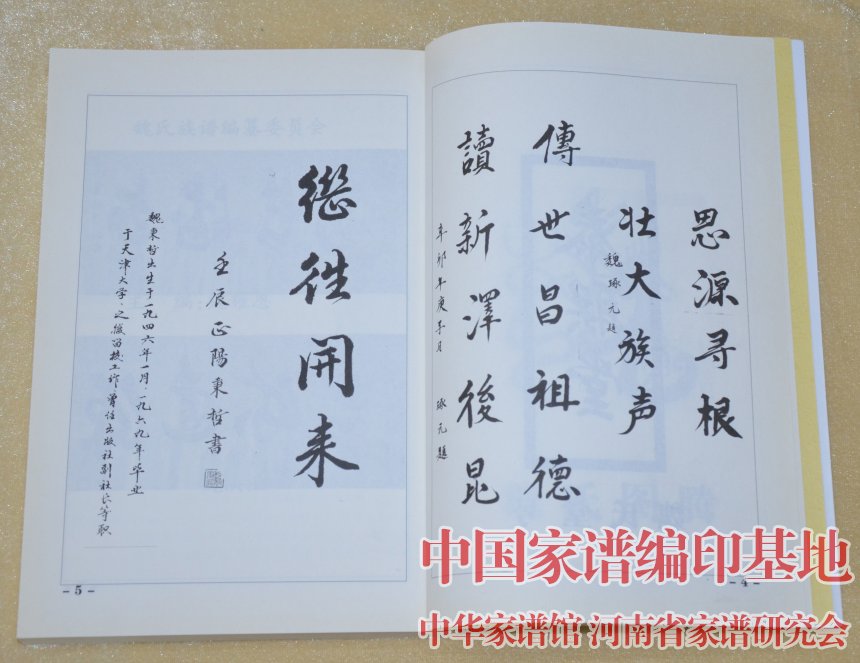 思源寻根
壮大族声
魏琢元题
傳世昌祖德
讀新澤後昆
辛卯年庚子月 琢元題
- 4 -
繼徃開来
壬辰正陽秉哲書
魏秉哲出生于一九四六年一月,一九六九年毕业
于天津大学,之後留校工作,曾任出版社副社长等职
- 5 -
中国家谱编印基地
中华家谱馆 河南省家谱研究会